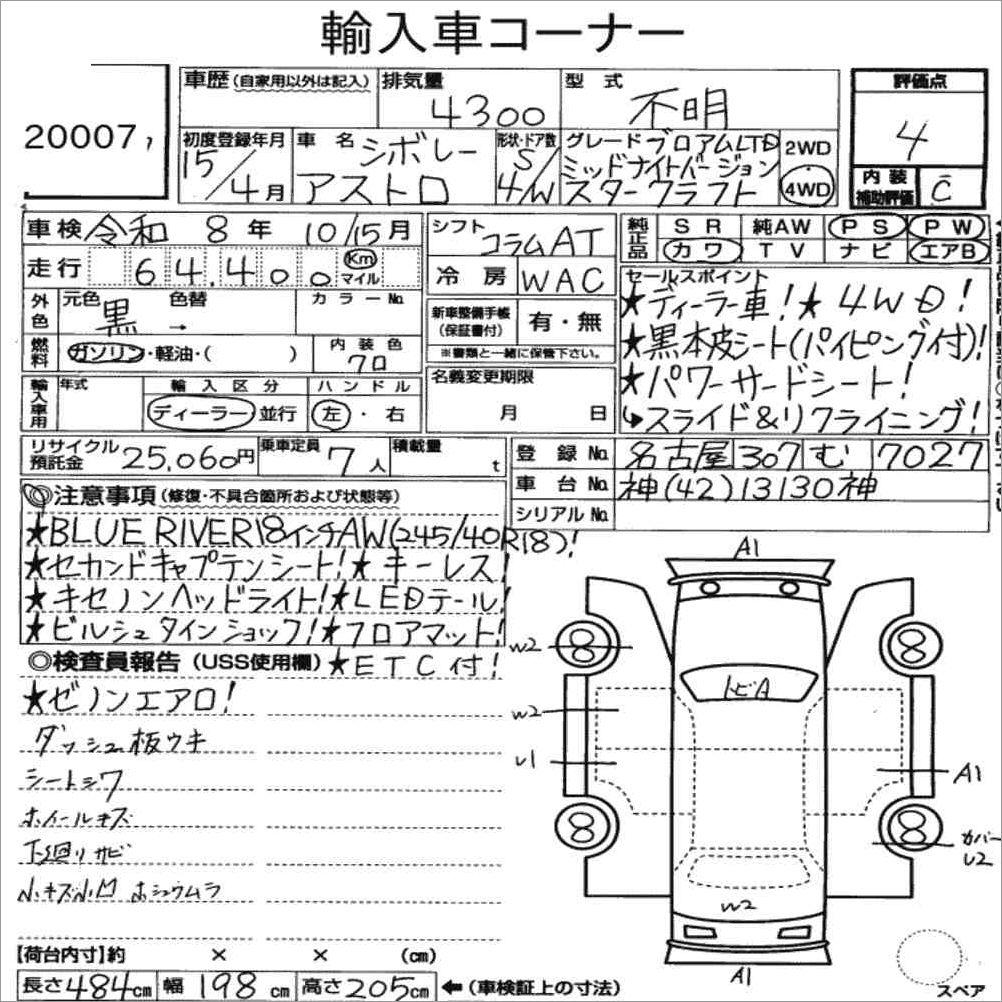 輸入車コーナー
20007
車歴(自家用以外は記入)
排気量 4300
型式 不明
評価点 4
初度登録年月 15/4月
車名 シボレー アストロ
形状・ドア数 S 4/W
グレード ブロアムLTD
ミッドナイトバージョン
スタークラフト
2WD
4WD
内装補助評価 C
車検 令和8年10/15月
走行 64,400 Km マイル
シフト コラムAT
冷房 WAC
純正品 SR 純AW PS PW
カワ TV ナビ エアB
外色 元色 黒 色替 → カラーNo.
燃料 ガソリン・軽油・( ) 内装色 クロ
新車整備手帳(保証書付) 有・無
※書類と一緒に保管下さい。
セールスポイント
★ディーラー車!★4WD!
★黒本皮シート(パイピング付)!
★パワーサードシート!
↳スライド&リクライニング!
輸入車用 年式 輸入区分 ディーラー 並行 ハンドル 左・右
名義変更期限 月 日
リサイクル預託金 25,060円 乗車定員 7人 積載量 t
登録No. 名古屋 307 む 7027
車台No. 神(42)13130神
シリアルNo.
◎注意事項(修復・不具合箇所および状態等)
★BLUE RIVER18インチAW(245/40R18)!
★セカンドキャプテンシート!★キーレス!
★キセノンヘッドライト!★LEDテール!
★ビルシュタインショック!★フロアマット!
◎検査員報告(USS使用欄)★ETC付!
★ゼノンエアロ!
ダッシュ板ウキ
シートシワ
ホイールキズ
下廻りサビ
小キズ小凹 ホシュウムラ
A1
W2
8
8
トビA
W2
U1
A1
8
8
カバーU2
W2
A1
【荷台内寸】約 × × (cm)
長さ484cm 幅198cm 高さ205cm ←(車検証上の寸法)
スペア